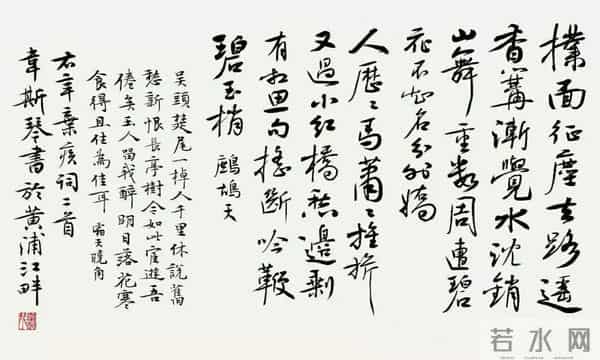 撲面征塵去路遥
香篝漸覺水沈銷
山無重數周遭碧
花不知名分外嬌
人歷々馬蕭々旌旂
又過小紅橋愁邊剩
有相思句摇斷吟鞭
碧玉梢 鷓鴣天
吴頭楚尾一掉人千里休説舊
愁新恨長亭樹今如此宦遊吾
倦矣玉人留我醉明日落花寒
食得且住為佳耳 霜天曉角
右辛棄疾詞二首
韋斯琴書於黄浦江畔
若水网